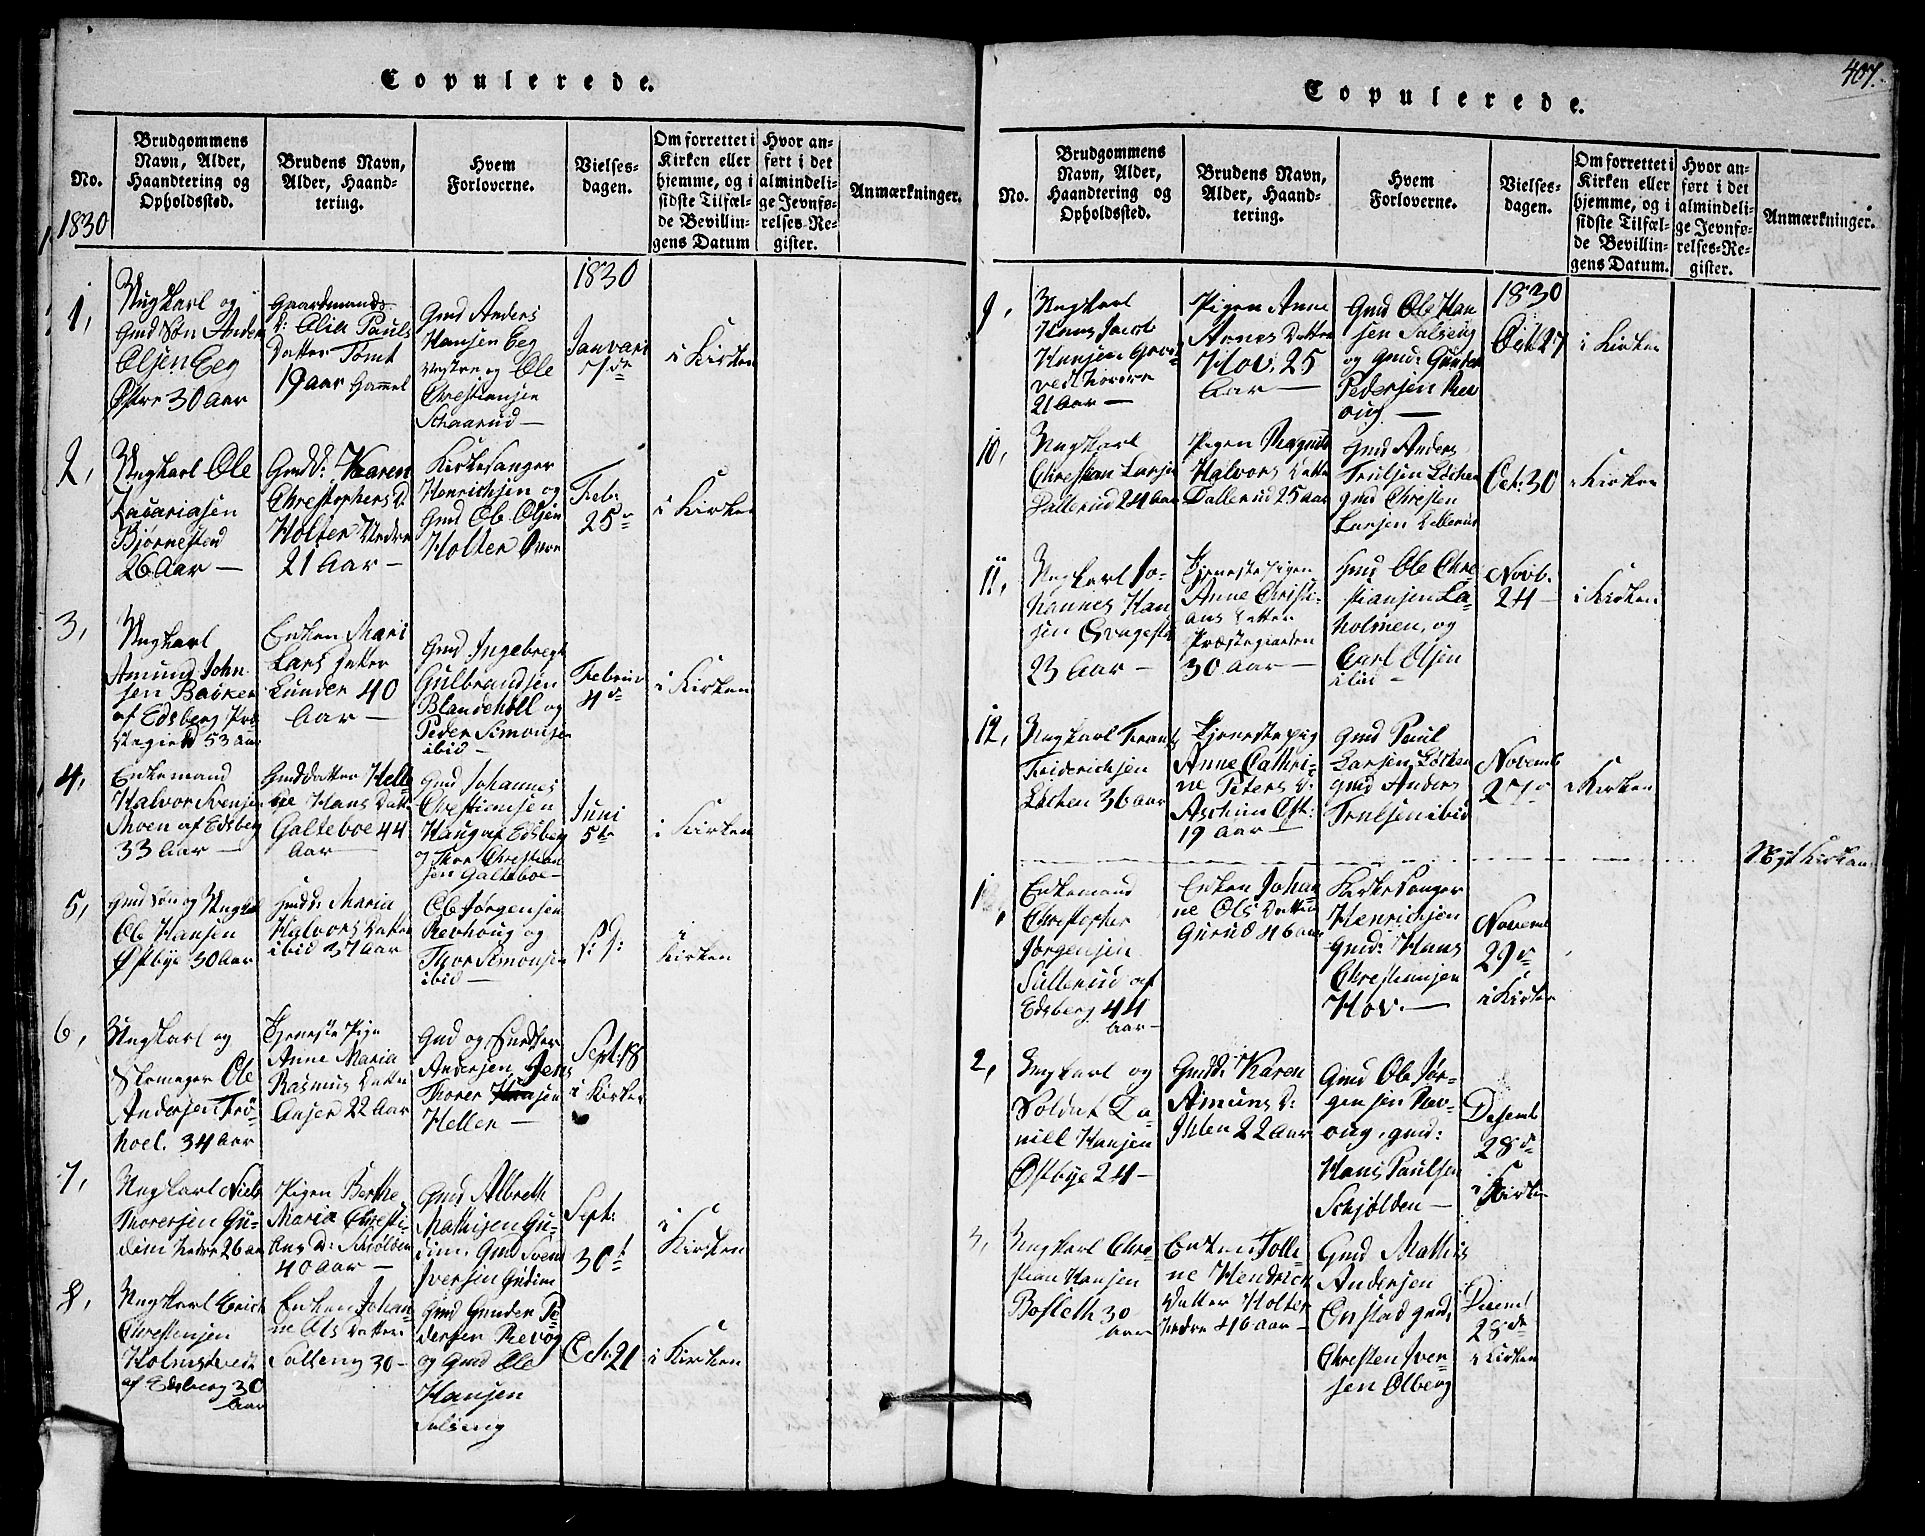 407.
Copulerede.
No.
1830
Brudgommens
Navn, Alder,
Haandtering og
Opholdssted.
Brudens Navn,
Alder, Haand-
tering.
Hvem
Forloverne.
Vielses-
dagen.
Om forrettet i
Kirken eller
hjemme, og i
sidste Tilfæl-
de Bevillin-
gens Datum
Hvor an-
ført i det
almindeli-
ge Jevnfø-
relses-Re-
gister.
Anmærkninger.
1830
1,
Ungkarl og
Gmd Søn Ander
Olsen Eeg
Østre 30 Aar
Gaardmands
d: Olia Pauls
Datter Tomt
19 aar Gammel
Gmd Anders
Hansen Eeg
Vestre og Ole
Christiansen
Schaarud
Januari
i Kirken
2,
Ungkarl Ole
Zacariasen
Bjørnestad
26 Aar
Gmdd: Karen
Christophers D:
Holter Nedre
21 Aar
Kirkesanger
Henrichsen og
Gmd Ole Olsen
Holter Øvre
Febr:
25
i Kirken
3,
Ungkarl
Amund John-
sen Backen
af Edsberg Præ-
stegield 53 aar
Enken Mari
Lars Datter
Lunder 40
Aar
Gmd Ingebregt
Gulbrandsen
Blandehøll og
Peder Simonsen
ibid
Februar
4de
i Kirken
4,
Enkemand
Halvor Svensen
Moen af Edsberg
33 Aar
Gmddatter Helle
Hans Datter
Galteboe 44
Aar
Gmd Johannes
Christiansen
Haug af Edsberg
og Thor Christian
sen Galteboe
Juni
5te
i Kirken
5,
Gmd Søn og Ungkarl
Ole Hansen
Østbye 30 Aar
Gmdd: Maria
Halvors Datter
ibid 37 Aar
Ole Jørgensen
Revhoug og
Thor Simonsen
ibid
i
Kirken
6,
Ungkarl og
Skomager Ole
Andersen Frö-
hoel. 34 Aar
Tjeneste Pige
Anne Maria
Rasmus Datter
22 Aar
Gmd og
Andersen Jens
Thorer
Heller
Sept: 18
i Kirken
7,
Ungkarl Niels
Thoresen Gu-
dim nedre 26 aar
Pigen Berthe
Maria Christi-
ans D: Schjølden
40 Aar
Gmd Albreth
Mathisen Gu-
dim. Gmd Svend
Iversen Gudim
Sept:
30te
i
Kirken
8,
Ungkarl Erich
Christensen
Holmstvedt
af Edsberg 30
Aar
Enken Johan-
ne Ols Datter
Salleng 30
Gmd Gunder Pe-
dersen Revog
og Gmd Ole
Hansen
Salseng
Oct. 21
i Kirken
Copulerede.
No.
Brudgommens
Navn, Alder,
Haandtering og
Opholdssted.
Brudens Navn,
Alder, Haand-
tering.
Hvem
Forloverne.
Vielses-
dagen.
Om forrettet i
Kirken eller
hjemme, og i
sidste Tilfæl-
de Bevillin-
gens Datum.
Hvor an-
ført i det
almindeli-
ge Jevnfø-
relses-Re-
gister.
Anmærkninger.
1830
9,
Ungkarl
Hans Jacob
Hansen
21 Aar
Pigen Anne
Arnes Datter
Hov. 25
Aar
Gmd Ole Han
sen Salseng
og Gmd: Gunder
Pedersen Rev
oug
Oct. 27
i Kirken
10,
Ungkarl
Christian Larsen
Dallerud 24 Aar
Pigen Magnild
Halvors Datter
Dallerud 25 aar
Gmd Anders
Trulsen Løchen
gmd Christen
Larsen
Oct: 30
i Kirken
11,
Ungkarl Jo-
hannes Han
sen
23 Aar
Tjenestepigen
Anne Christi-
ans Datter
Præstegaarden
30 Aar
Gmd Ole Chri
stiansen La-
holmen, og
Carl Olsen
ibid
Novb.
24
i Kirken
12,
Ungkarl Frants
Friderichsen
Løchen 36 aar
Tjenestepig
Anne Cathri-
ne Peters D:
Aschim Øst:
19 Aar
Gmd Paul
Larsen Løchen
gmd Anders
Trulsen ibid
Novemb
27
i Kirken
1,
Enkemand
Christopher
Jørgensen
Sulterud af
Edsberg 44
Aar
Enken Johan
ne Ols Datter
Gurud 46 aar
Kirkesanger
Henrichsen
Gmd: Hans
Christiansen
Hov.
Novemb
29de
i Kirken
2,
Ungkarl og
Soldat Da-
niel Hansen
Østbye 24
Gmdd: Karen
Amunds D:
Ihlen 22 Aar
Gmd Ole Jør-
gensen Rev-
oug, gmd:
Hans Paulsen
Schjølden
Desemb
28de
i Kirken
3,
Ungkarl Chri-
stian Hansen
Bosleth 30
Aar
Enken Tolle
ne Hendrick
Datter Holter
nedre 46 aar
Gmd Mathis
Andersen
Onstad gmd:
Christen Iver-
sen Olberg
28de
i Kirken